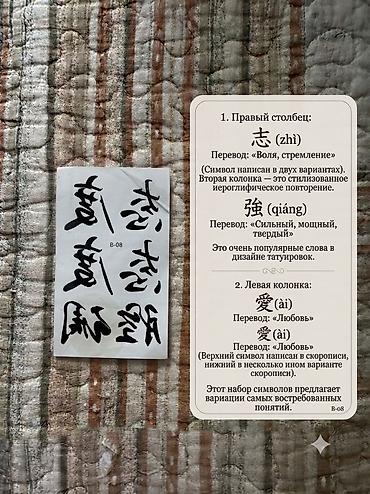 B-08
1. Правый столбец:
志 (zhì)
Перевод: «Воля, стремление»
(Символ написан в двух вариантах).
Вторая колонка — это стилизованное
иероглифическое повторение.
強 (qiáng)
Перевод: «Сильный, мощный,
твердый»
Это очень популярные слова в
дизайне татуировок.
2. Левая колонка:
愛 (ài)
Перевод: «Любовь»
愛 (ài)
Перевод: «Любовь»
(Верхний символ написан в скорописи,
нижний в несколько ином варианте
скорописи).
Этот набор символов предлагает
вариации самых востребованных
понятий.
B-08